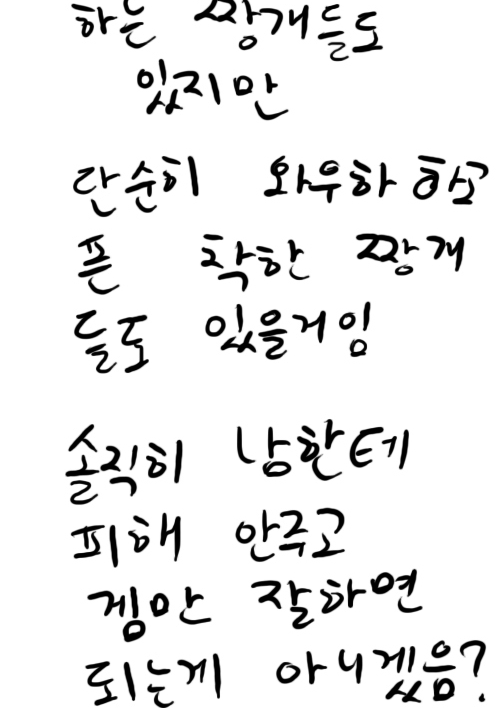 하는 짱개들도
있지만
단순히 와우하 하고
픈 착한 짱개
들도 있을거임
솔직히 남한테
피해 안주고
겜만 잘하면
되는게 아니겠음?